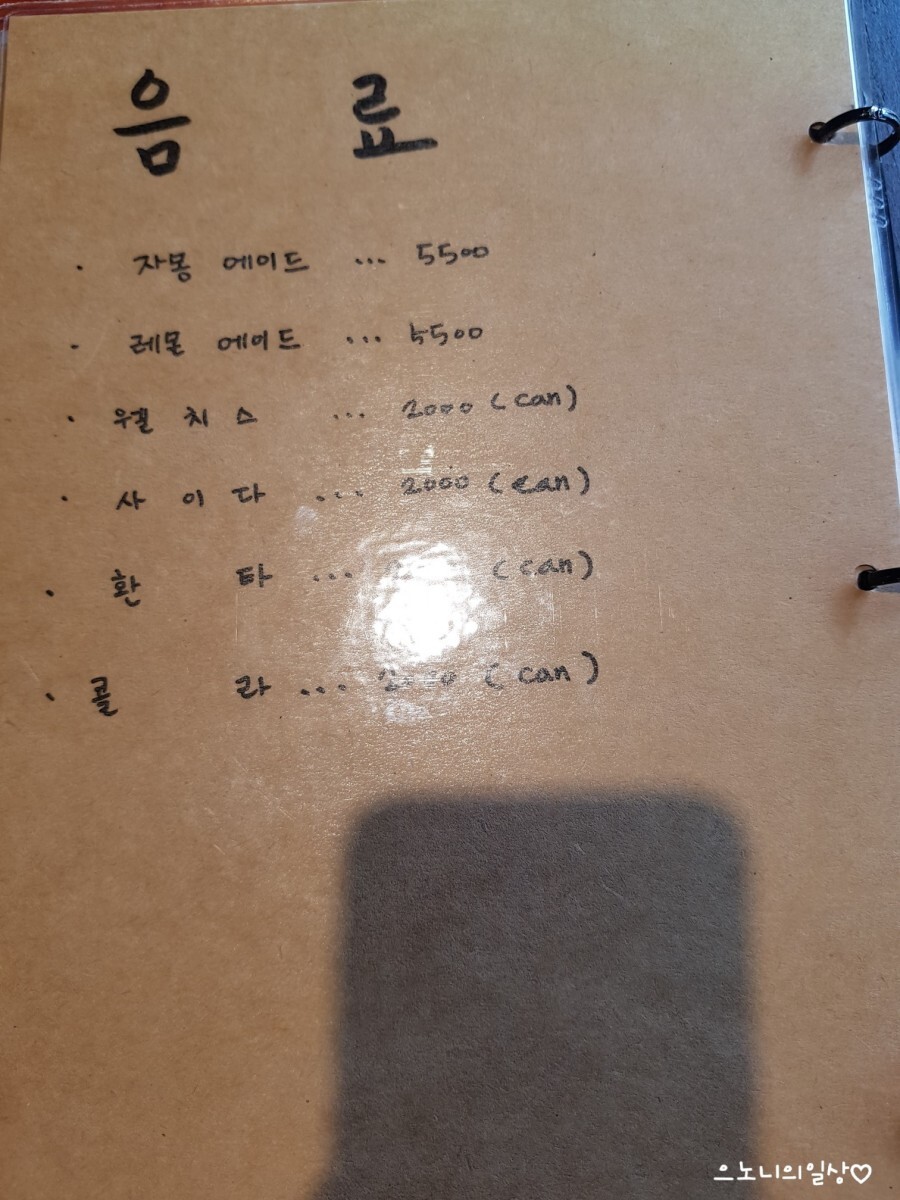 음료
· 자몽 에이드 ... 5500
· 레몬 에이드 ... 5500
· 웰치스 ... 2000 (can)
· 사이다 ... 2000 (can)
· 환타 ... (can)
· 콜라 ... 2000 (can)
으노니의일상♡